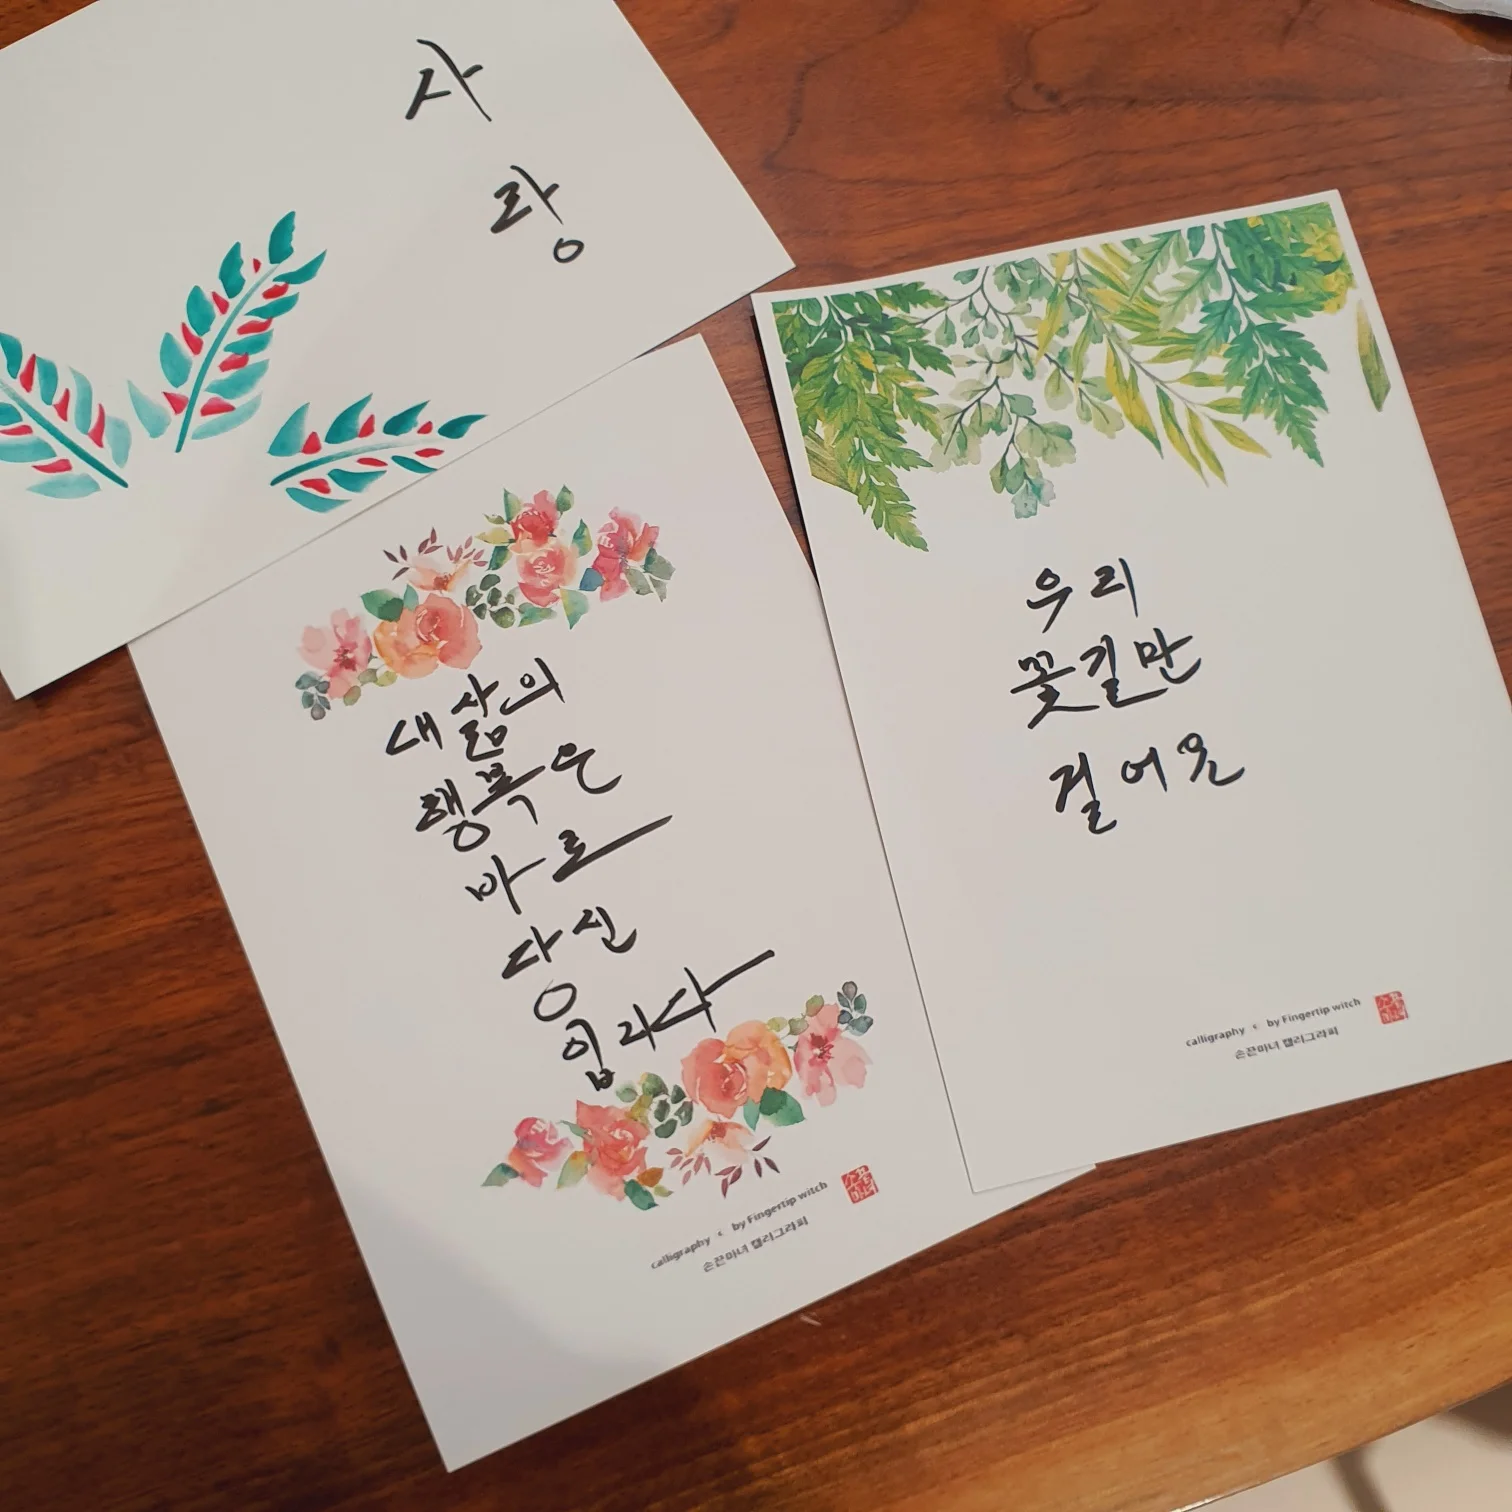 사
랑
내 삶의
행복은
바로
당신
입니다
calligraphy by Fingertip witch
손끈마녀 캘리그라피
우리
꽃길만
걸어요
calligraphy by Fingertip witch
손끈마녀 캘리그라피